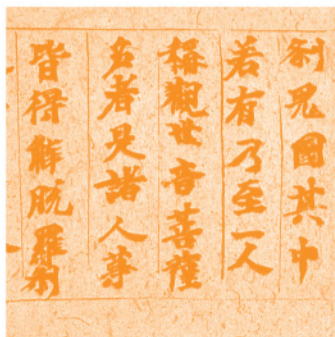 刹鬼國其中
若有乃至一人
稱觀世音菩薩
名者是諸人等
皆得解脱羅刹